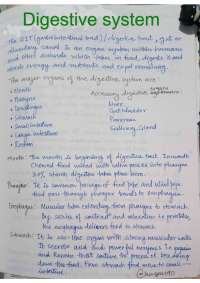 Digestive system
The GIT (gastrointestinal tract) / digestive tract, gut or
alimentary canal is an organ system within humans
and other animals which takes in food, digests it and
energy and nutrients and expel remaining.
The major organs of the digestive system are:
Mouth
Accessory digestive organs
Pharynx
Liver
Esophagus
Gall bladder
Stomach
Pancreas
Small intestine
Salivary Gland
Large intestine
Rectum
Mouth: The mouth is beginning of digestive tract. In mouth
Chewed food mixed with saliva
30% starch digestion takes place here.
Pharynx: It is common passage of food pipe and wind pipe.
food pass through pharynx travels to esophagus
Esophagus: Muscular tube extending from pharynx to stomach.
By series of contraction and relaxation is peristalsis,
the esophagus delivers food to stomach.
Stomach: It is sac like organ with strong muscular walls
It secrete acid and powerful enzymes i.e. pepsin
and rennin that continue the process of breaking
down the food. From stomach food moves to small
intestine.